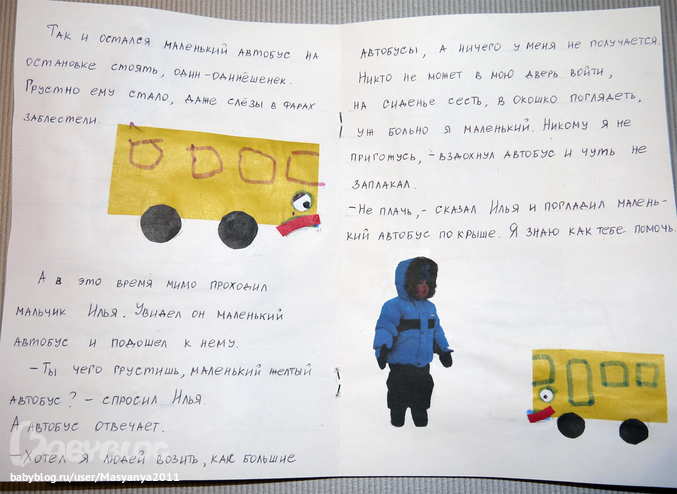 Так и остался маленький автобус на
остановке стоять, один-одинёшенек.
Грустно ему стало, даже слёзы в фарах
заблестели.
А в это время мимо проходил
мальчик Илья. Увидел он маленький
автобус и подошел к нему.
- Ты чего грустишь, маленький желтый
автобус? - спросил Илья.
А автобус отвечает.
- Хотел я людей возить, как большие
автобусы, а ничего у меня не получается.
Никто не может в мою дверь войти,
на сиденье сесть, в окошко поглядеть,
уж больно я маленький. Никому я не
пригожусь, - вздохнул автобус и чуть не
заплакал.
- Не плачь, - сказал Илья и погладил малень-
кий автобус по крыше. Я знаю как тебе помочь.
Babyblog
babyblog.ru/user/Masyanya2011